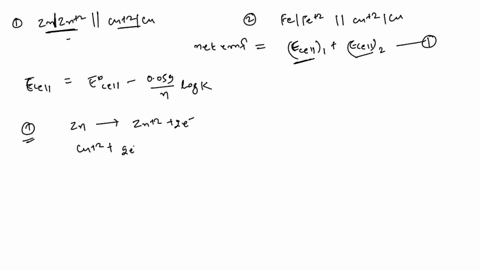 ① Zn/Zn+2 || Cu+2/Cu
② Fe/Fe+2 || Cu+2/Cu
net emf = (Ecell)1 + (Ecell)2 — ①
Ecell = E°cell - 0.059/n log K
① Zn → Zn+2 + 2e-
Cu+2 + 2e